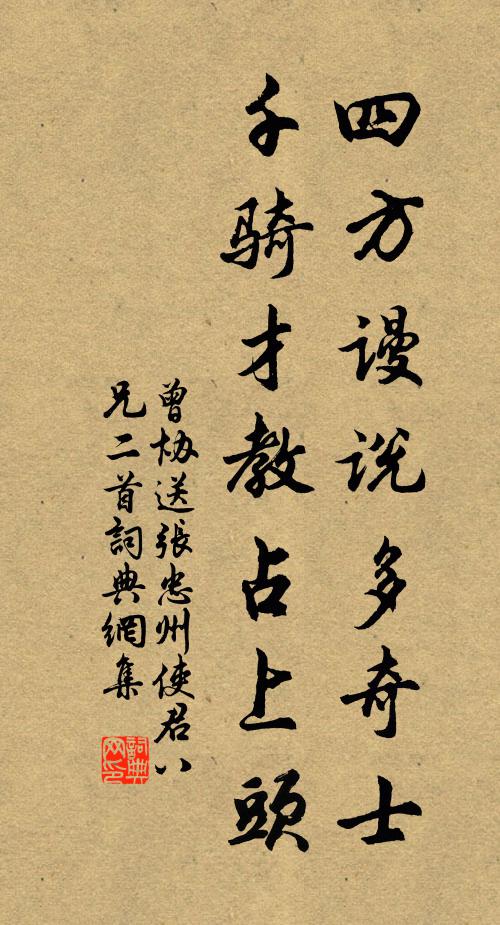 四方謾説多奇士
千騎才教占上頭
曾协送張忠州使君八
兄二首詞典網集
詞典
网印